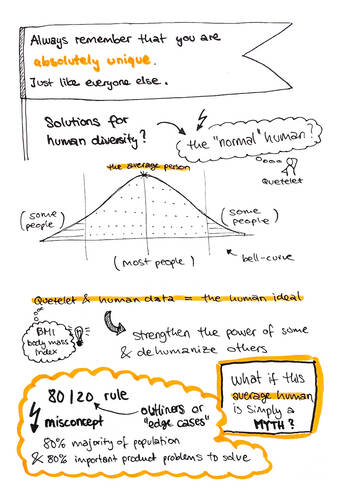 Always remember that you are
absolutely unique.
Just like everyone else.
Solutions for
human diversity?
the "normal" human?
Quetelet
the average person
(some people)
(some people)
(most people)
bell-curve
Quetelet & human data = the human ideal
BMI
body mass
index
strengthen the power of some
& dehumanize others
80/20 rule
misconcept
outliners or
"edge cases"
80% majority of population
& 80% important product problems to solve
What if this
average human
is simply a
MYTH?